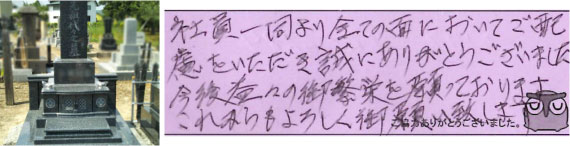 社員一同より全ての面においてご配
慮をいただき誠にありがとうございました
今後益々の御繁栄を願っております
これからもよろしく御願い致します
ご協力ありがとうございました。